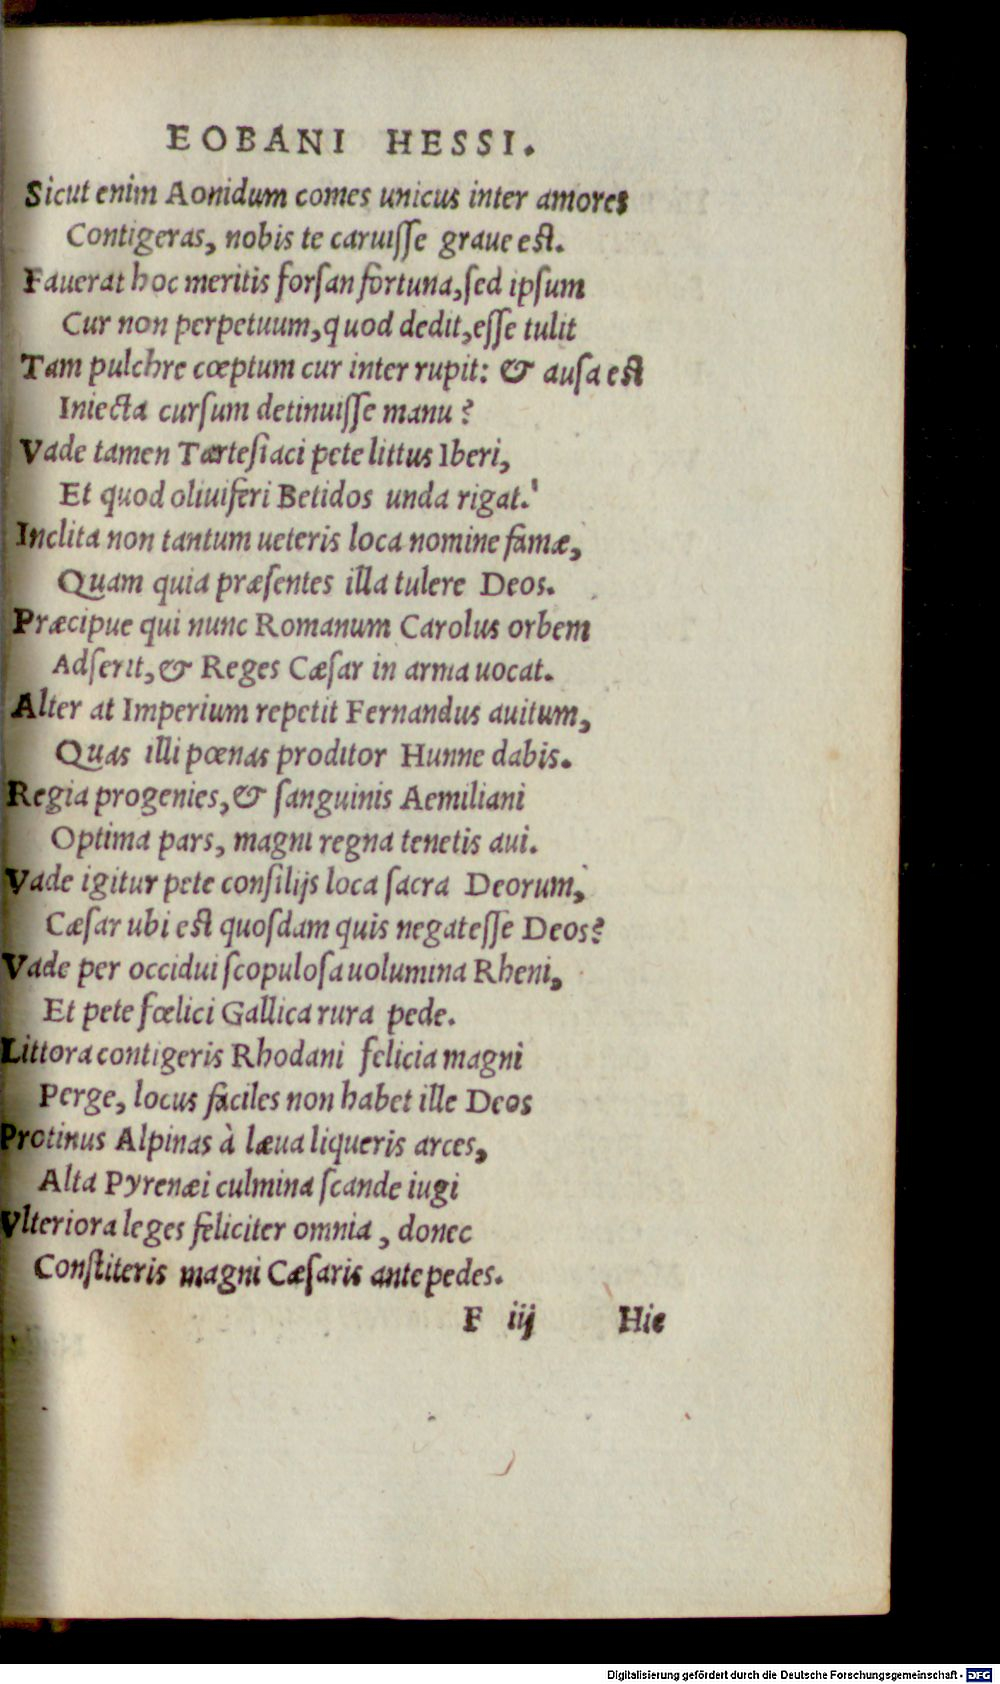 EOBANI HESSI.
Sicut enim Aonidum comes unicus inter amores
Contigeras, nobis te caruiſſe graue eſt.
Fauerat hoc meritis forſan fortuna, ſed ipſum
Cur non perpetuum, quod dedit, eſſe tulit
Tam pulchre cœptum cur inter rupit: & auſa eſt
Iniecta curſum detinuiſſe manu?
Vade tamen Tarteſiaci pete littus Iberi,
Et quod oliuiferi Betidos unda rigat.
Inclita non tantum ueteris loca nomine famæ,
Quam quia præſentes illa tulere Deos.
Præcipue qui nunc Romanum Carolus orbem
Adſerit, & Reges Cæſar in arma uocat.
Alter at Imperium repetit Fernandus auitum,
Quas illi pœnas proditor Hunne dabis.
Regia progenies, & ſanguinis Aemiliani
Optima pars, magni regna tenetis aui.
Vade igitur pete conſilijs loca ſacra Deorum,
Cæſar ubi eſt quoſdam quis negat eſſe Deos?
Vade per occidui ſcopuloſa uolumina Rheni,
Et pete fœlici Gallica rura pede.
Littora contigeris Rhodani felicia magni
Perge, locus faciles non habet ille Deos
Protinus Alpinas à læua liqueris arces,
Alta Pyrenæi culmina ſcande iugi
Vlteriora leges feliciter omnia, donec
Conſtiteris magni Cæſaris ante pedes.
F iij Hic
Digitalisierung gefördert durch die Deutsche Forschungsgemeinschaft - DFG